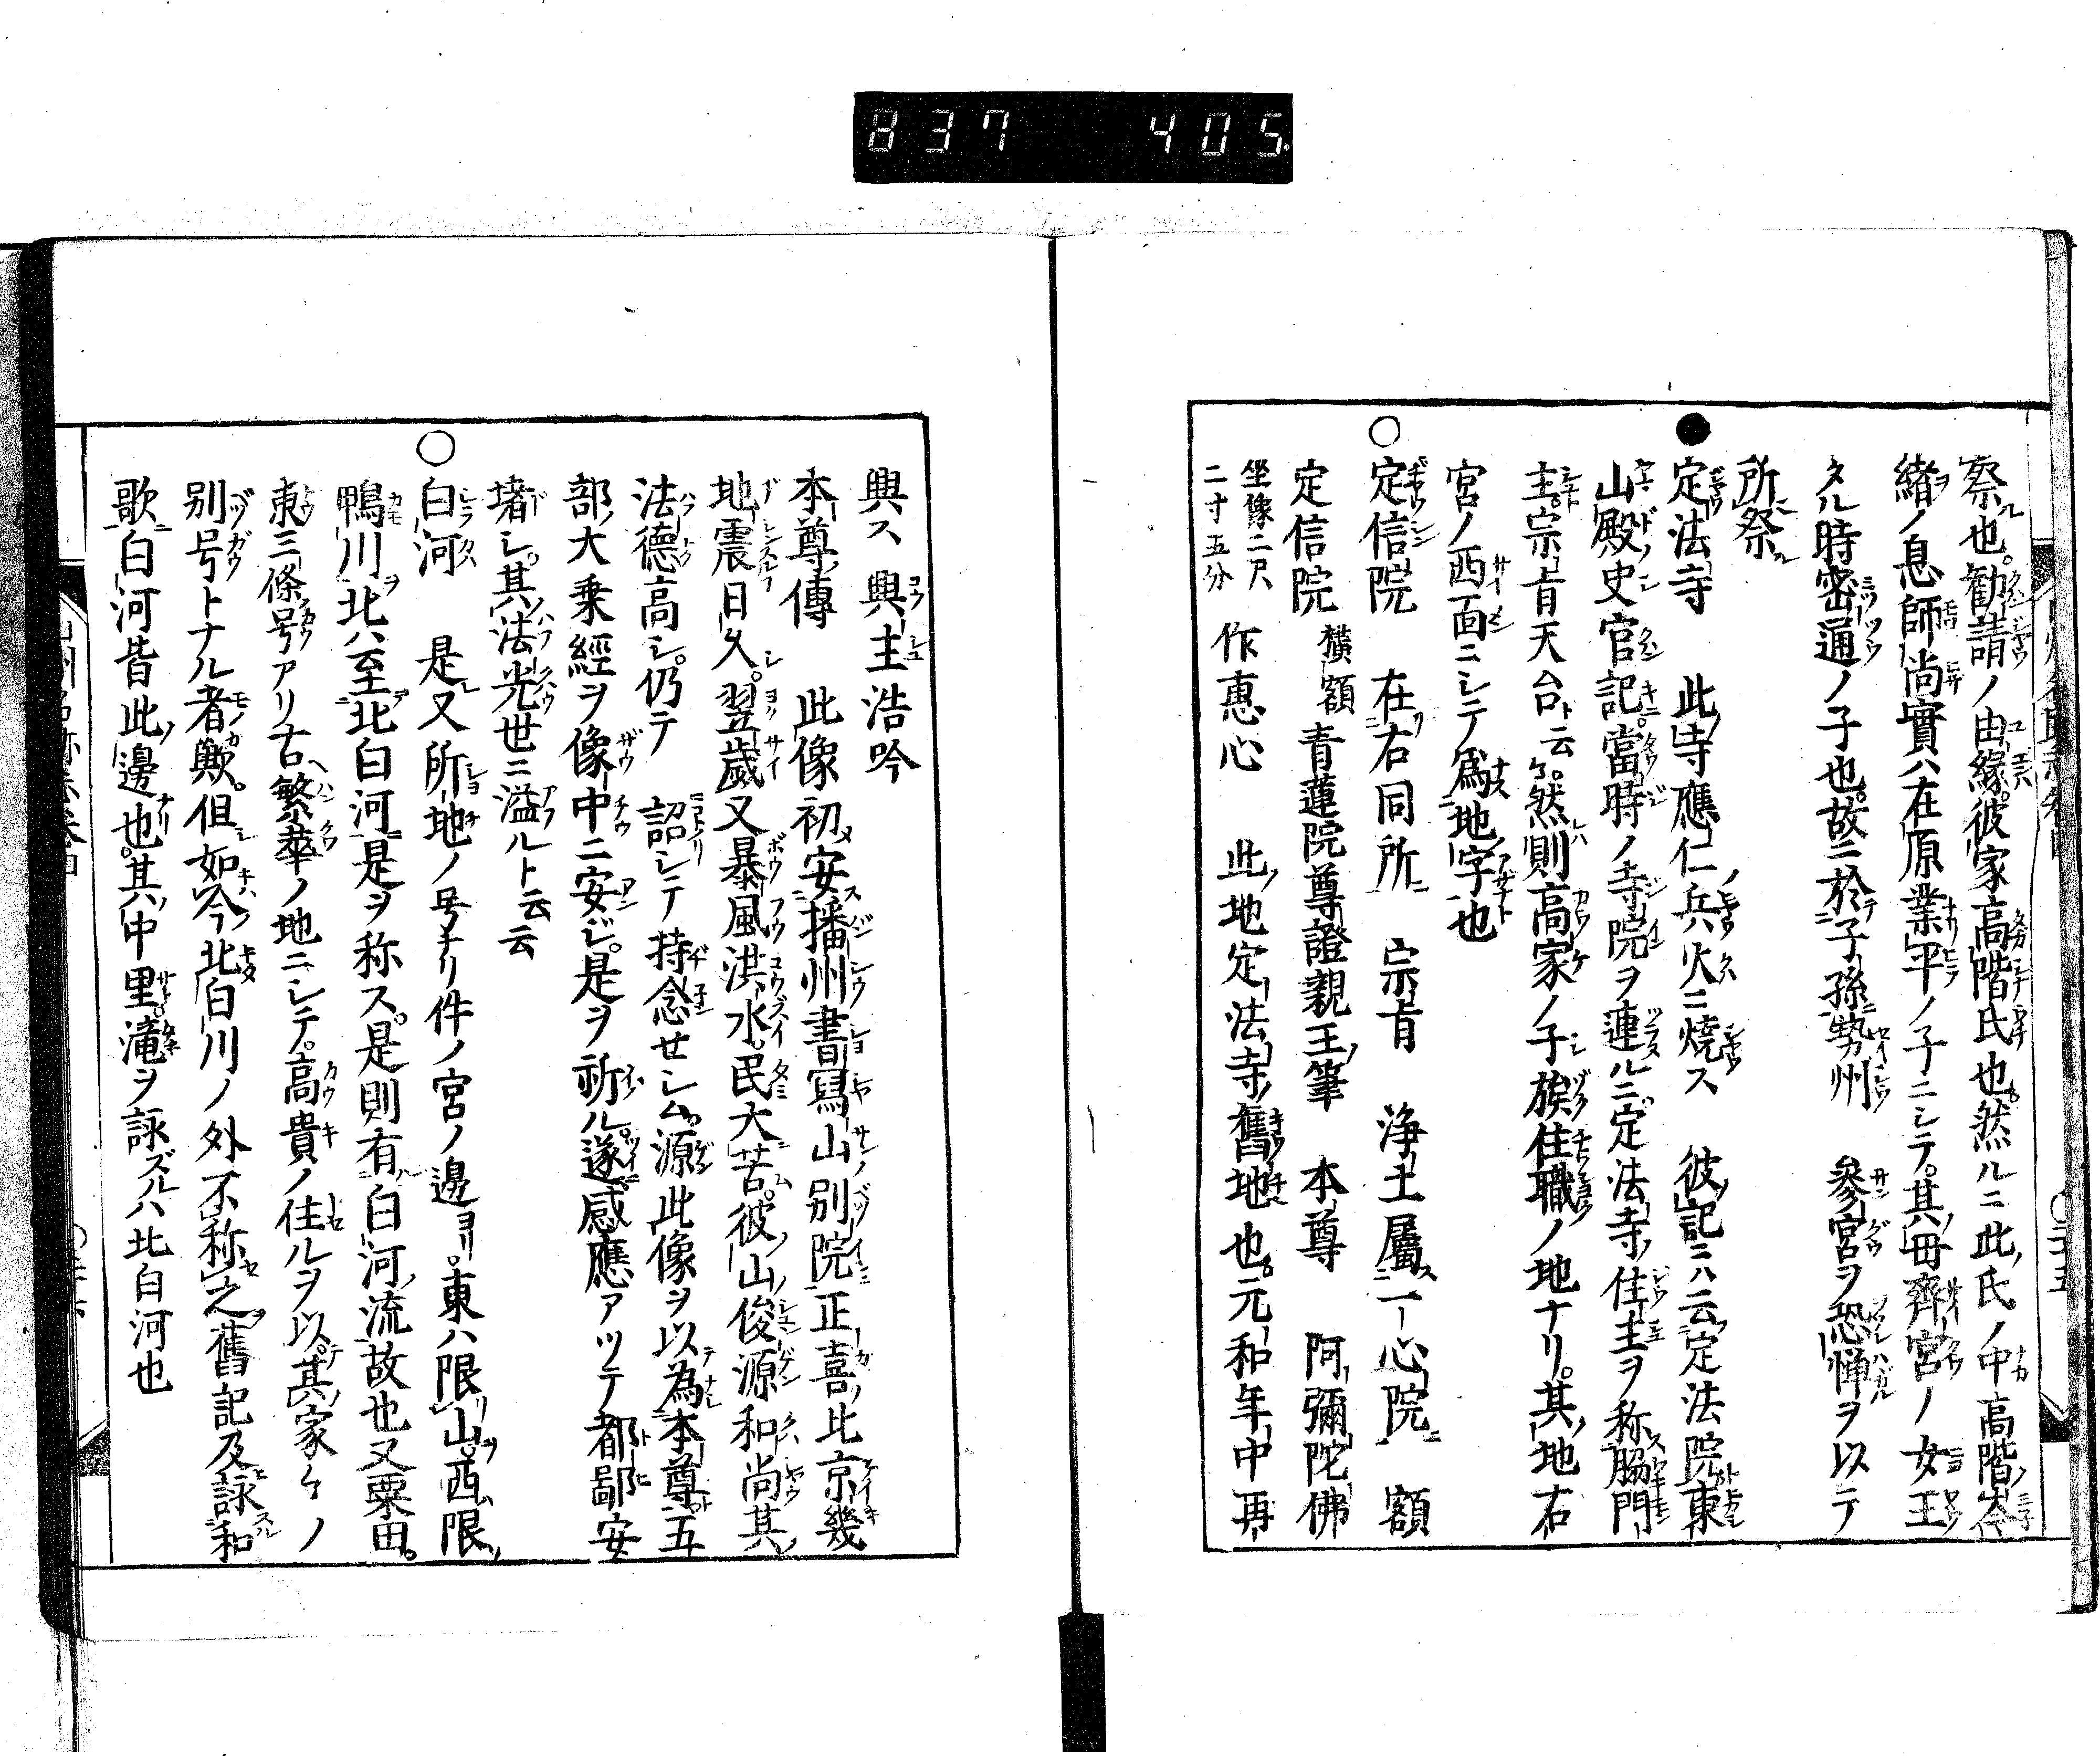 837 405
察也勧請ノ由縁彼家高階氏也然ルニ此氏ノ中高階岑
緒ノ息師尚實ハ在原業平ノ子ニシテ其母齊宮ノ女王
タル時密通ノ子也故ニ於子孫勢州 參宮ヲ恐憚ヲ以テ
所祭
●定法寺 此寺應仁兵火ニ燒ス 彼記ニハ云定法院東
山殿史官記當時ノ寺院ヲ連ルニ定法寺住主ヲ称脇門
主宗旨天台ト云ヽ然則高家ノ子族住職ノ地ナリ其地右
宮ノ西面ニシテ為地字也
○定信院 在右同所 宗旨 浄土屬一心院 額
定信院 横額 青蓮院尊證親王筆 本尊 阿彌陀佛
坐像二尺
二寸五分 作惠心 此地定法寺舊地也元和年中再
興ス興主浩吟
本尊傳 此像初安播州書寫山別院正喜比京幾
地震日久翌歳又暴風洪水民大苦彼山俊源和尚其
法德高シ仍テ 詔シテ持念セシム源此像ヲ以為本尊五
部大乗經ヲ像中ニ安ジ是ヲ祈ル遂感應アツテ都鄙安
堵シ其法光世ニ溢ルト云云
○白河 是又所地ノ号ナリ件ノ宮ノ邊ヨリ東ハ限山西限
鴨川北ハ至北白河是ヲ称ス是則有白河流故也又粟田
東三條号アリ古繁華ノ地ニシテ高貴ノ住ルヲ以其家々ノ
別号トナル者歟但如今北白川ノ外不称之舊記及詠和
歌白河皆此邊也其中里滝ヲ詠ズルハ北白河也